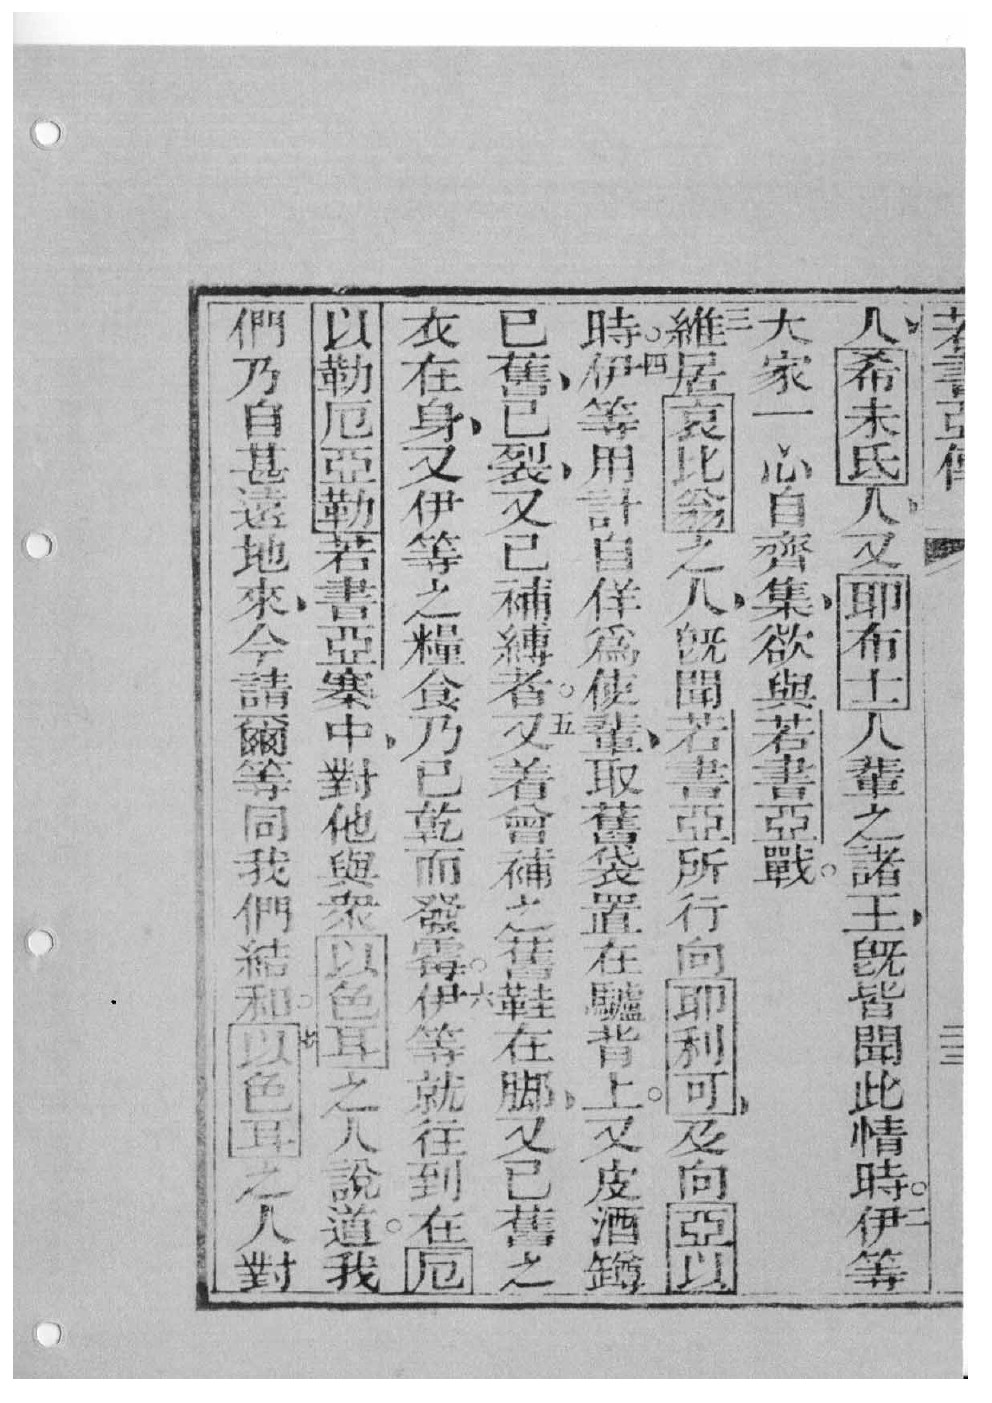 若書亞傳 二三
人希未氏人又耶布士人輩之諸王既皆聞此情時二伊等
大家一心自齊集欲與若書亞戰
三維居哀比翁之人既聞若書亞所行向耶利可及向亞以
時四伊等用計自佯為使輩取舊袋置在驢背上又皮酒罇
已舊已裂又已補縛者五又着曾補之舊鞋在脚又已舊之
衣在身又伊等之糧食乃已乾而發霉六伊等就往到在厄
以勒厄亞勒若書亞寨中對他與眾以色耳之人說道我
們乃自甚遠地來今請爾等同我們結和七以色耳之人對